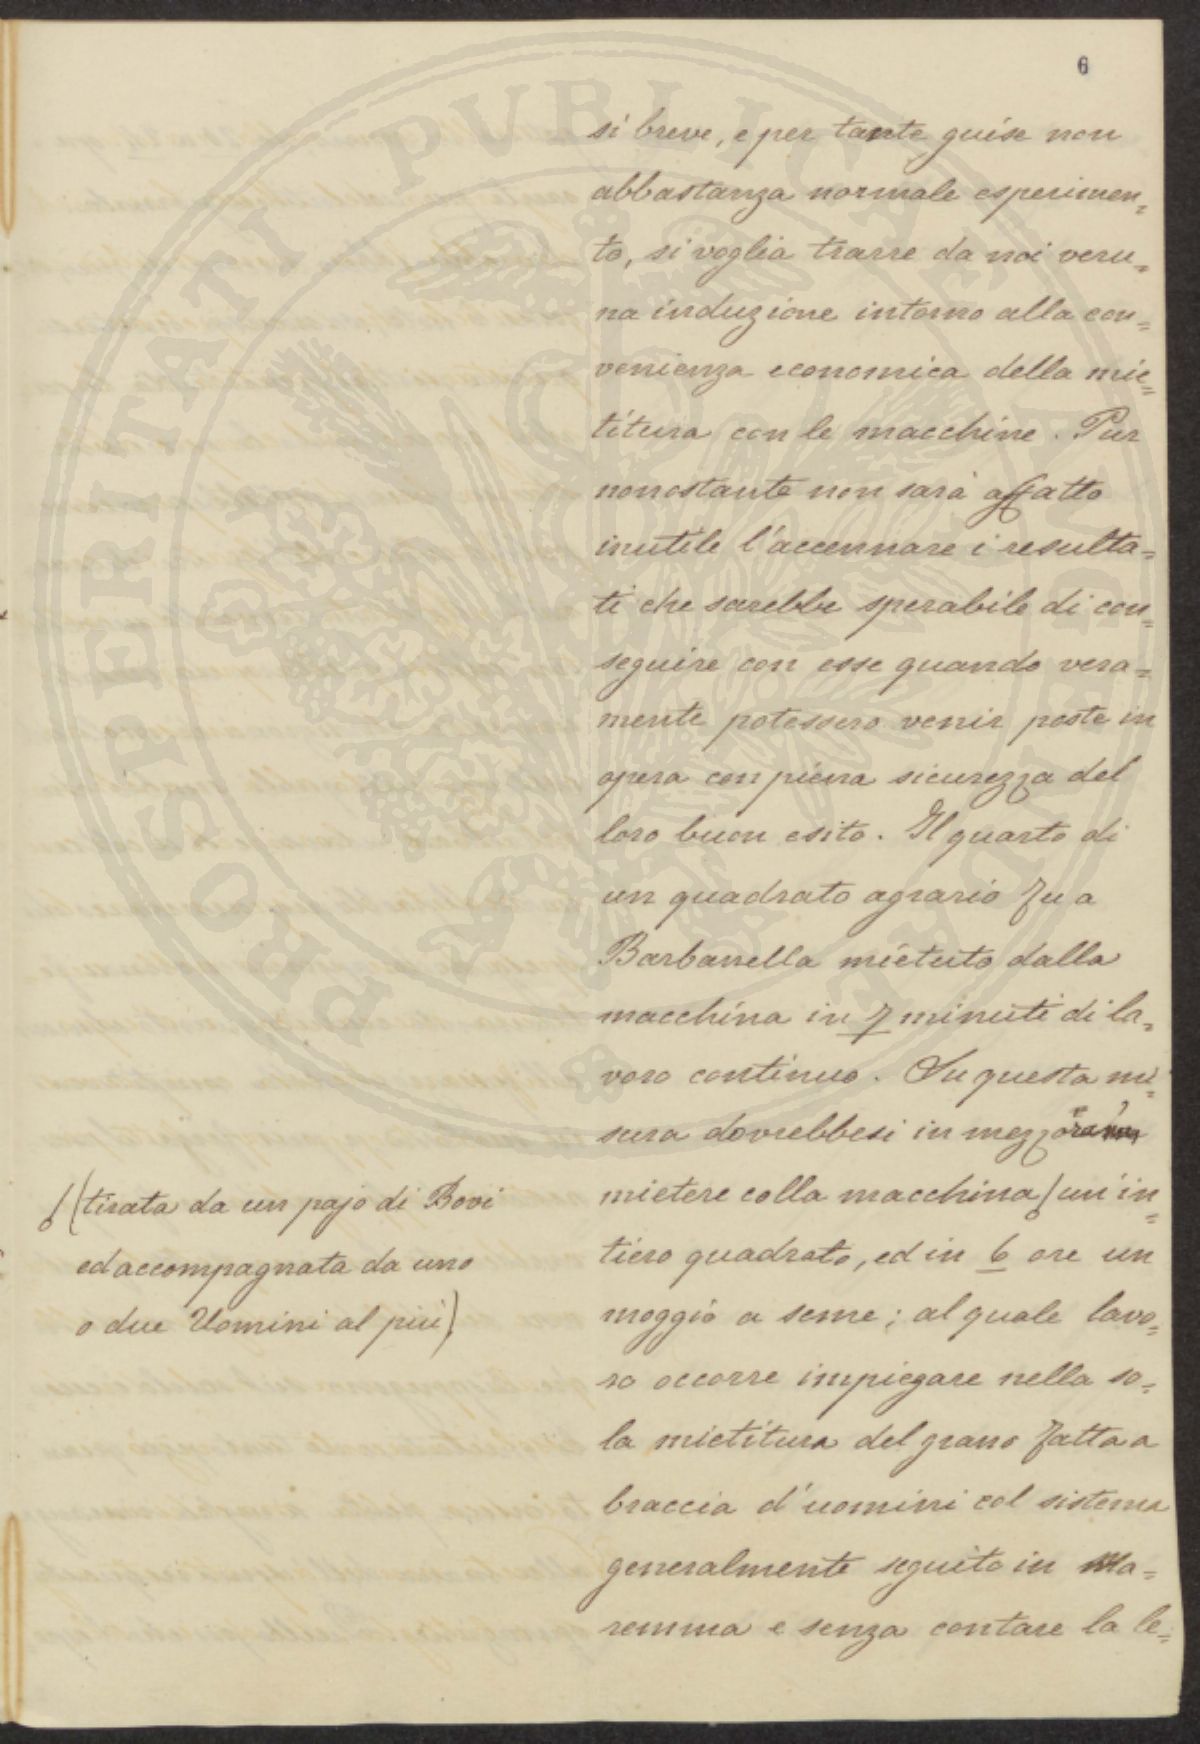 6
si breve, e per tante guise non
abbastanza normale esperimen=
to, si voglia trarre da noi veru=
na induzione intorno alla con=
venienza economica della mie=
titura con le macchine. Pur
nonostante non sarà affatto
inutile l'accennare i resulta=
ti che sarebbe sperabile di con=
seguire con esse quando vera=
mente potessero venir poste in
opera con piena sicurezza del
loro buon esito. Il quarto di
un quadrato agrario fu a
Barbanella mietuto dalla
macchina in 7 minuti di la=
voro continuo. Su questa mi=
sura dovrebbesi in mezz'ora
mietere colla macchina / un'in=
tiero quadrato, ed in 6 ore un
moggio a seme; al quale lavo=
ro occorre impiegare nella so=
la mietitura del grano fatta a
braccia d'uomini col sistema
generalmente seguito in Ma=
remma e senza contare la le=
/(tirata da un pajo di Bovi
ed accompagnata da uno
o due Uomini al più)
PROSPERITATI PUBLICAE AUGENDAE